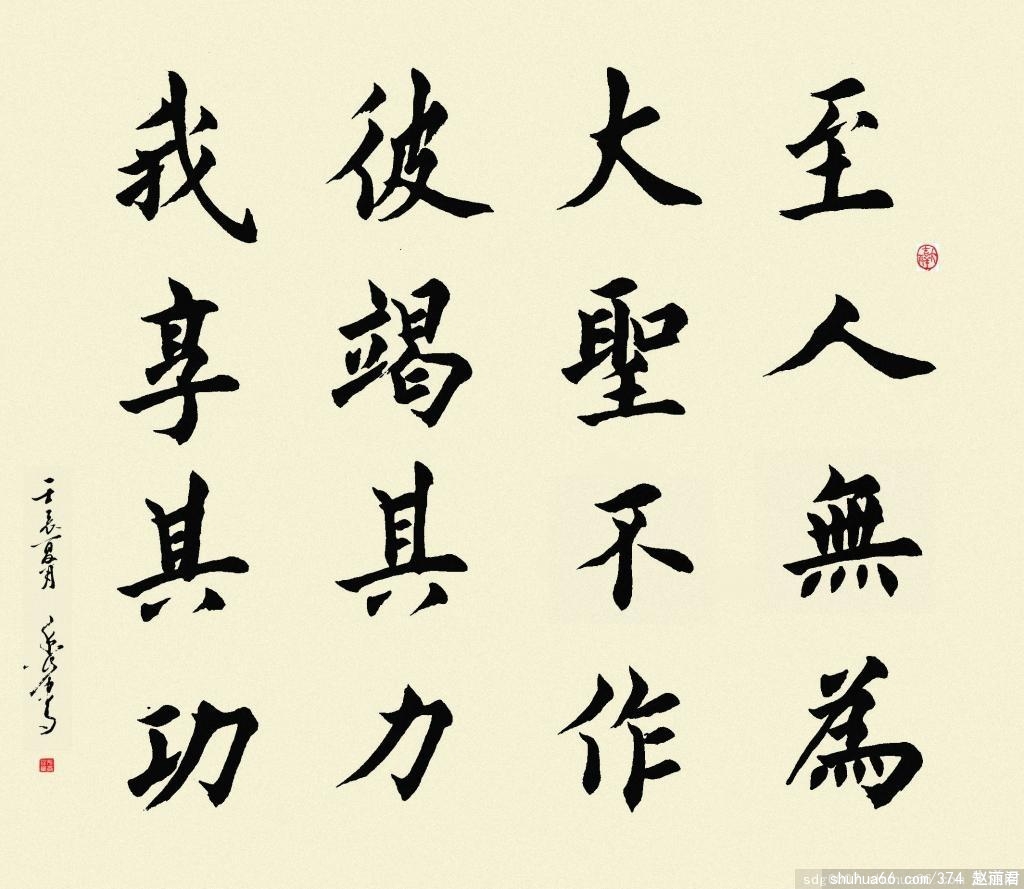 至人無為
大聖不作
彼竭其力
我享其功
壬辰夏月
shuhua66.com/374 赵丽君